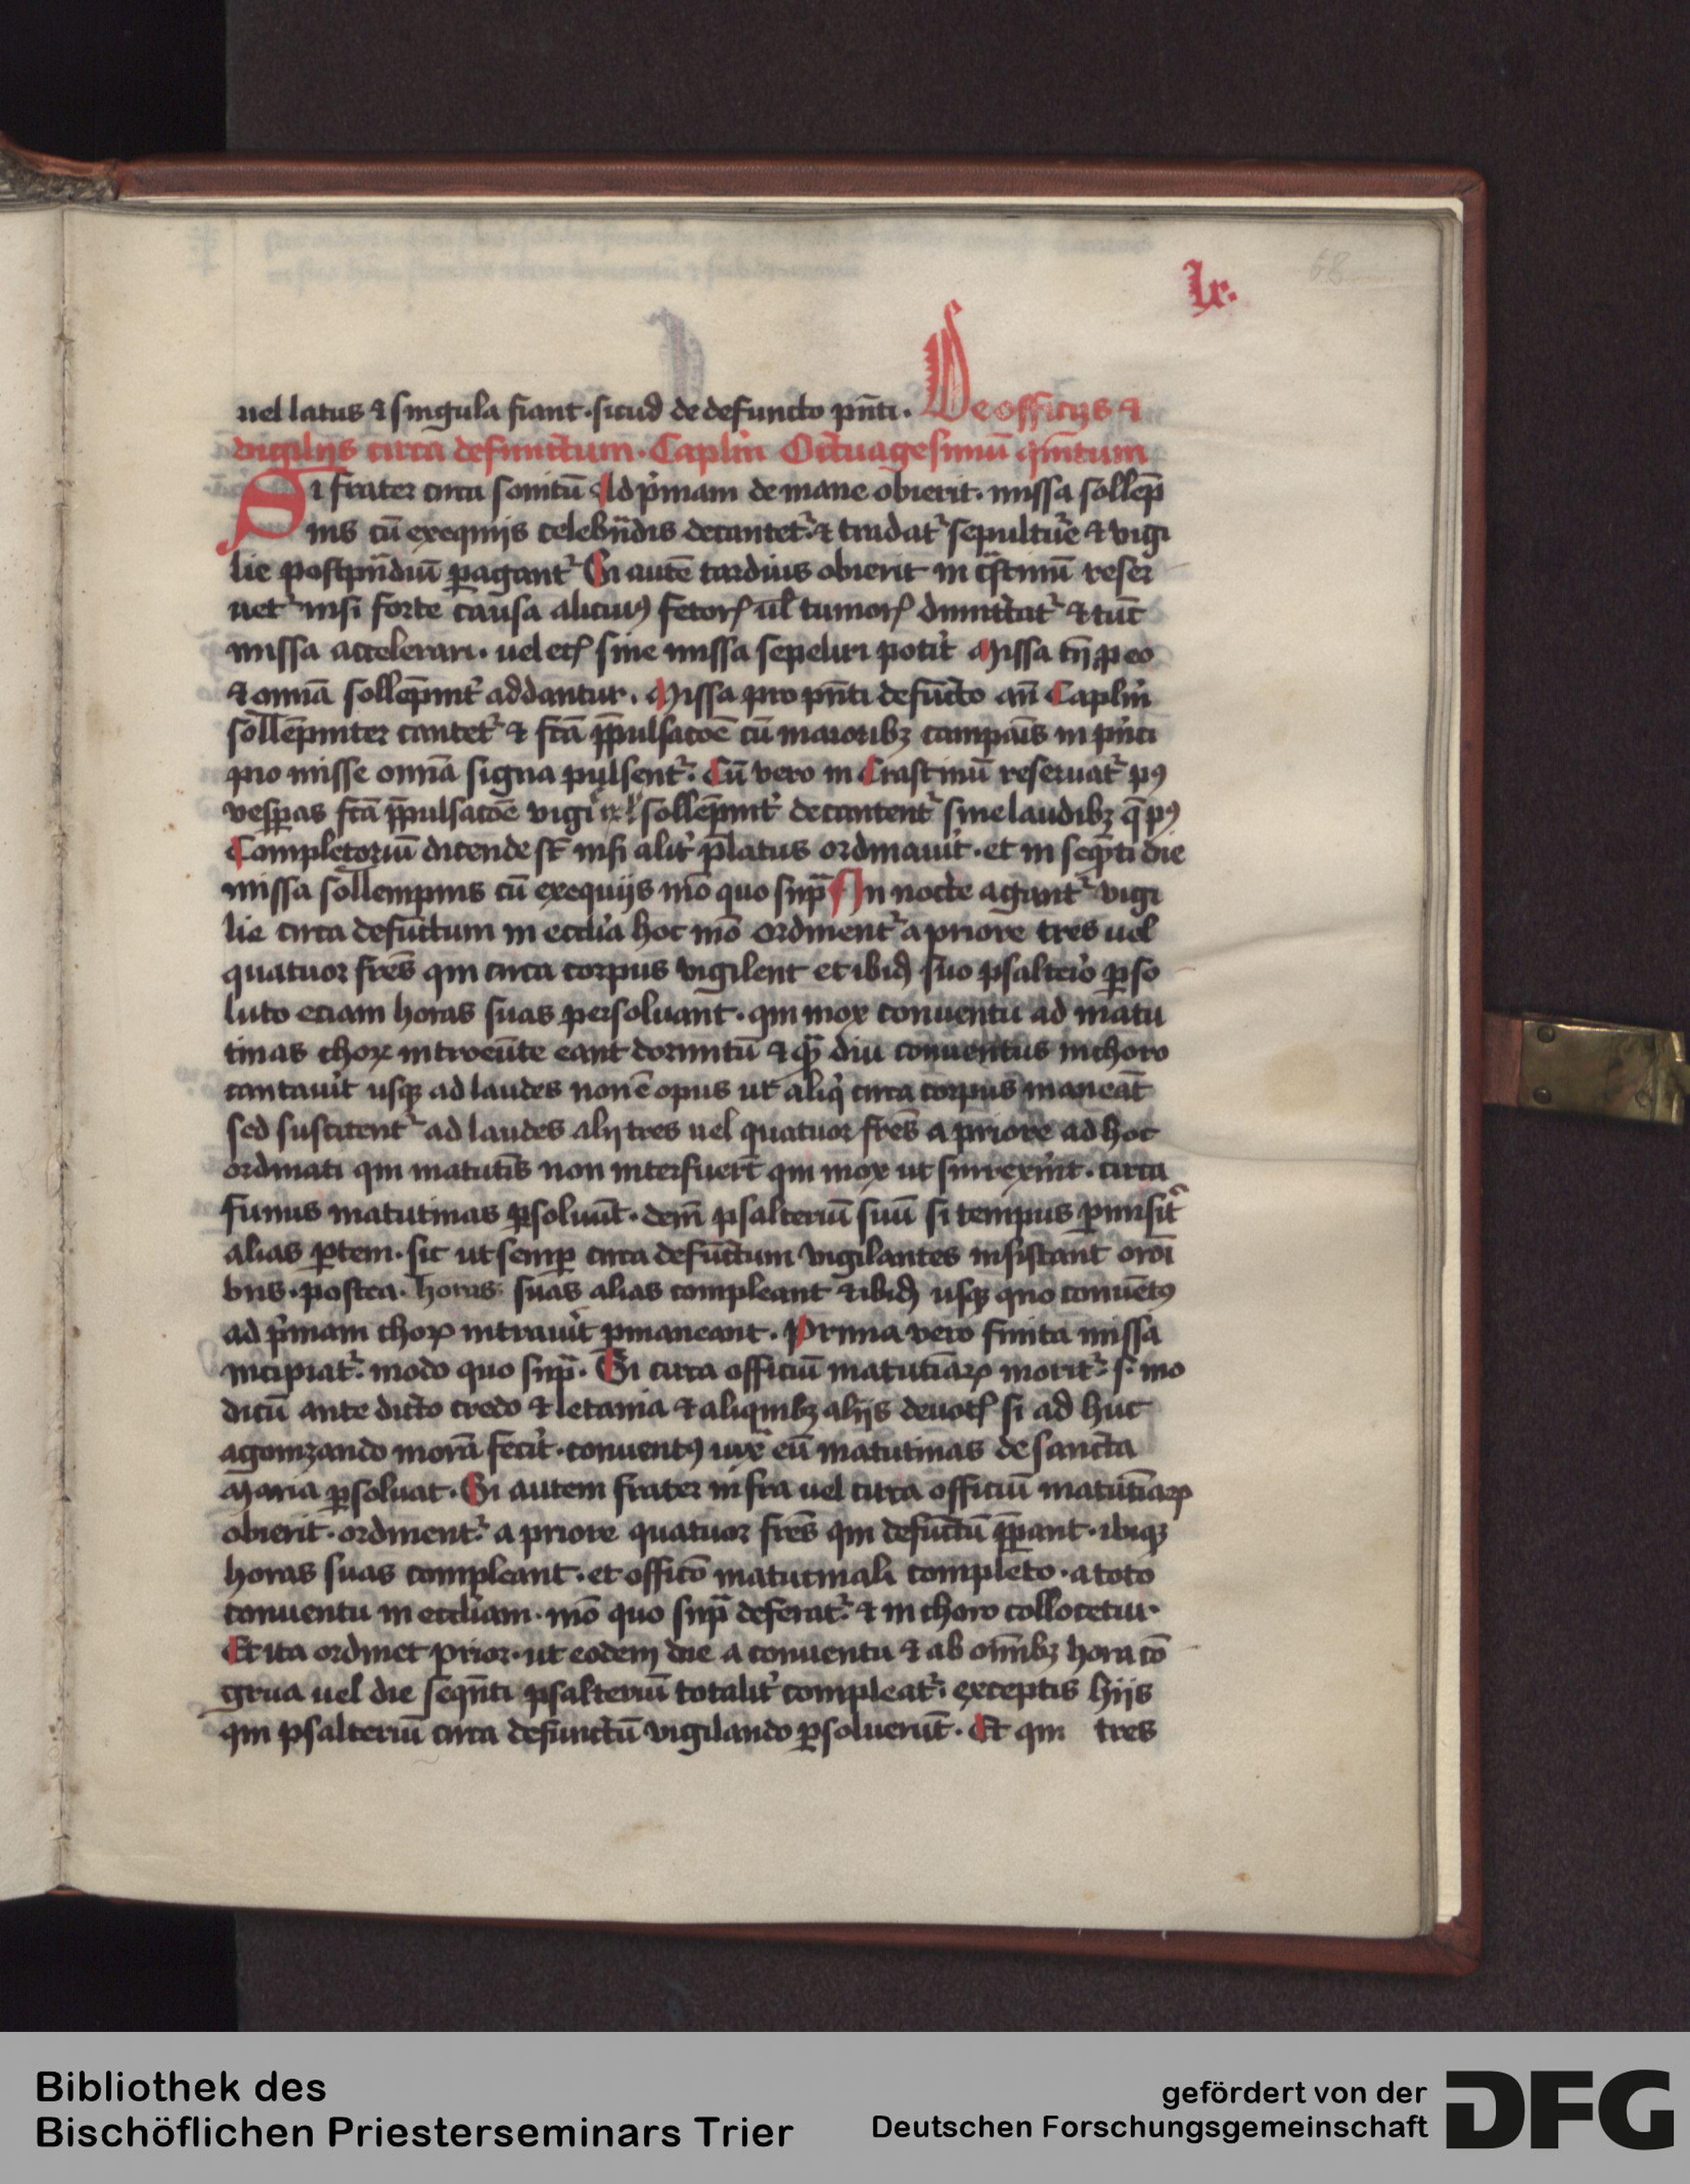 lx.
68
uel latus ⁊ singula fiant · sicud de defuncto pn̄ti . De officijs ⁊
vigilijs circa defunctum · Capl'm Octuagesimū qīntum
Si frater circa sonitū Ad p'mam de mane obierit . missa sollēp
nis cū exequijs celebrādis decantet' ⁊ tradat' sepulture ⁊ vigi
lie post prādiū ꝑagant' Si autē tardius obierit in crastinū reser
uet' nisi forte causa alicuiꝰ fetoris ul' tumoris dimittat' ⁊ tūc
missa accelerari . uel eciā sine missa sepeliri potit' Missa tn̄ ꝓ eo
⁊ omīa sollēpnit' addantur . Missa pro pn̄ti defūcto an̄ Capl'm
sollēpniter cantet' ⁊ fcā ꝑpulsacōe cū maioribꝫ campāis in pn̄ci
pio misse omīa signa pulsent' . Cū vero in Crastinū reseruat' pꝰ
vesꝑas fcā ꝑpulsacōe vigi sollēpnit' decantent' sine laudibꝫ q̄ pꝰ
Completoriū dicende sūt nisi alit' p̄latus ordinauit' . et in seqn̄ti die
missa sollempnis cū exequijs mō quo sup̄ In nocte agant' vigi
lie circa defūctum in eccl'ia hoc mō ordinent' a priore tres uel
quatuor frēs qui circa corpus vigilent et ibid' suo psalterio ꝑso
luto eciam horas suas persoluant . qui mox conuentu ad matu
tinas choꝝ introeūte eant dormitū ⁊ qͣ diu conuentus in choro
cantauit' usqꝫ ad laudes non ē opus ut aliq' circa corpus maneāt
sed suscitent' ad laudes alij tres uel quatuor frēs a priore ad hoc
ordinati qui matutīs non interfuerūt qui mox ut surrexerint . circa
funus matutinas ꝑsoluūt . dein̄ psalteriū suū si tempus ꝑmisit'
alias ꝑtem . sic ut semꝑ circa defūctum vigilantes insistant orōi
bus . postea . horas suas alias compleant ⁊ ibid' usqꝫ quo conuētꝰ
ad p'mam choꝝ intrauit' ꝑmaneant . Prima vero finita missa
incipiat' . modo quo sup̄ . Si circa officiū matutīaꝝ morit' . s. mo
dicū ante dicto credo ⁊ letania ⁊ aliquibꝫ alijs deuotis si ad huc
agonizando morā fecit' . conuentꝰ iuxͣ eū matutinas de sancta
Maria ꝑsoluat . Si autem frater infra uel circa officiū matutīaꝝ
obierit . ordinent' a priore quatuor frēs qui defūctū ꝑpant . ibiqꝫ
horas suas compleant . et officō matutinali completo . a toto
conuentu in eccl'iam . mō quo sup̄ deferat' . ⁊ in choro collocetur
Et ita ordinet prior . ut eodem die a conuentu ⁊ ab omībꝫ hora cō
grua uel die seqn̄ti psalteriū totalit' compleat' . exceptis hijs
qui psalteriū circa defunctū vigilando ꝑsoluerūt . Et qui tres
Bibliothek des
Bischöflichen Priesterseminars Trier
gefördert von der
Deutschen Forschungsgemeinschaft
DFG